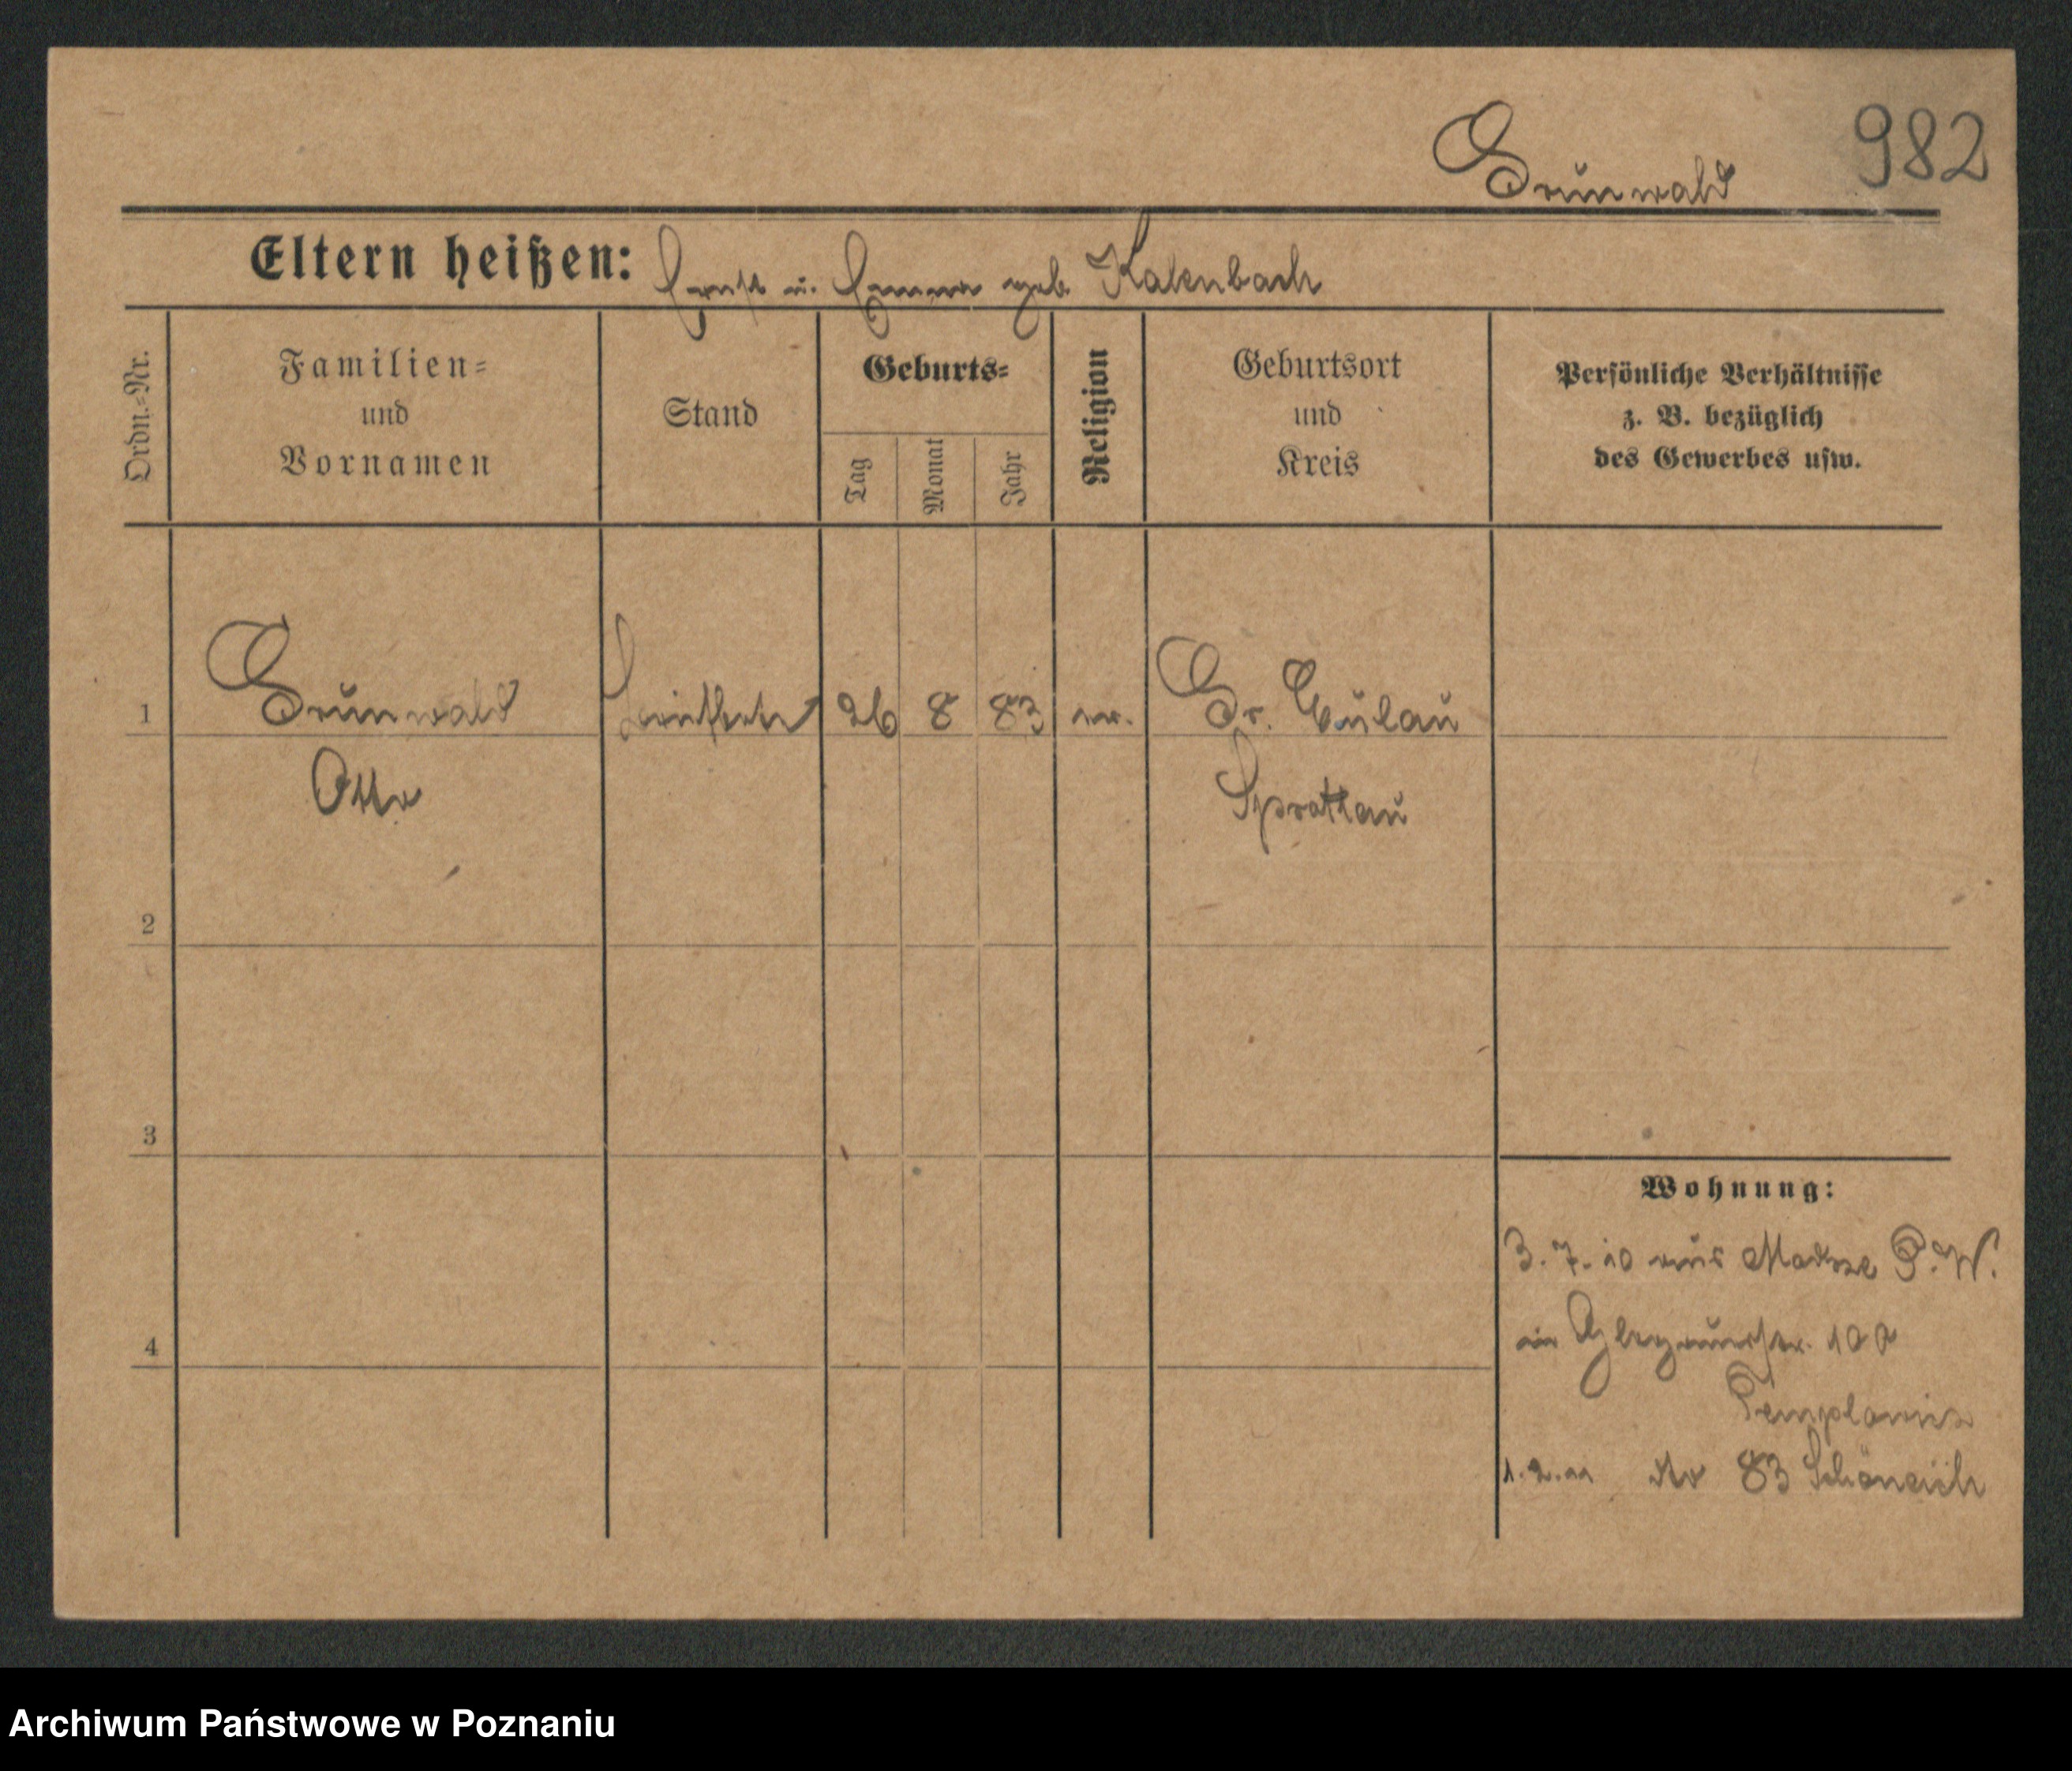 Grünwald 982
Eltern heißen: Ernst u. Emma geb. Kalenbach
Ordn.-Nr.
Familien-
und
Vornamen
Stand
Geburts-
Tag
Monat
Jahr
Religion
Geburtsort
und
Kreis
Persönliche Verhältnisse
z. B. bezüglich
des Gewerbes usw.
1 Grünwald 26 8 83 ev. Gr. Eulau
Otto Sprottau
2
3
4
Wohnung:
3. 7. 10 aus P. W.
in 100
1. 2. 11 dto 83 Schöneich
Archiwum Państwowe w Poznaniu